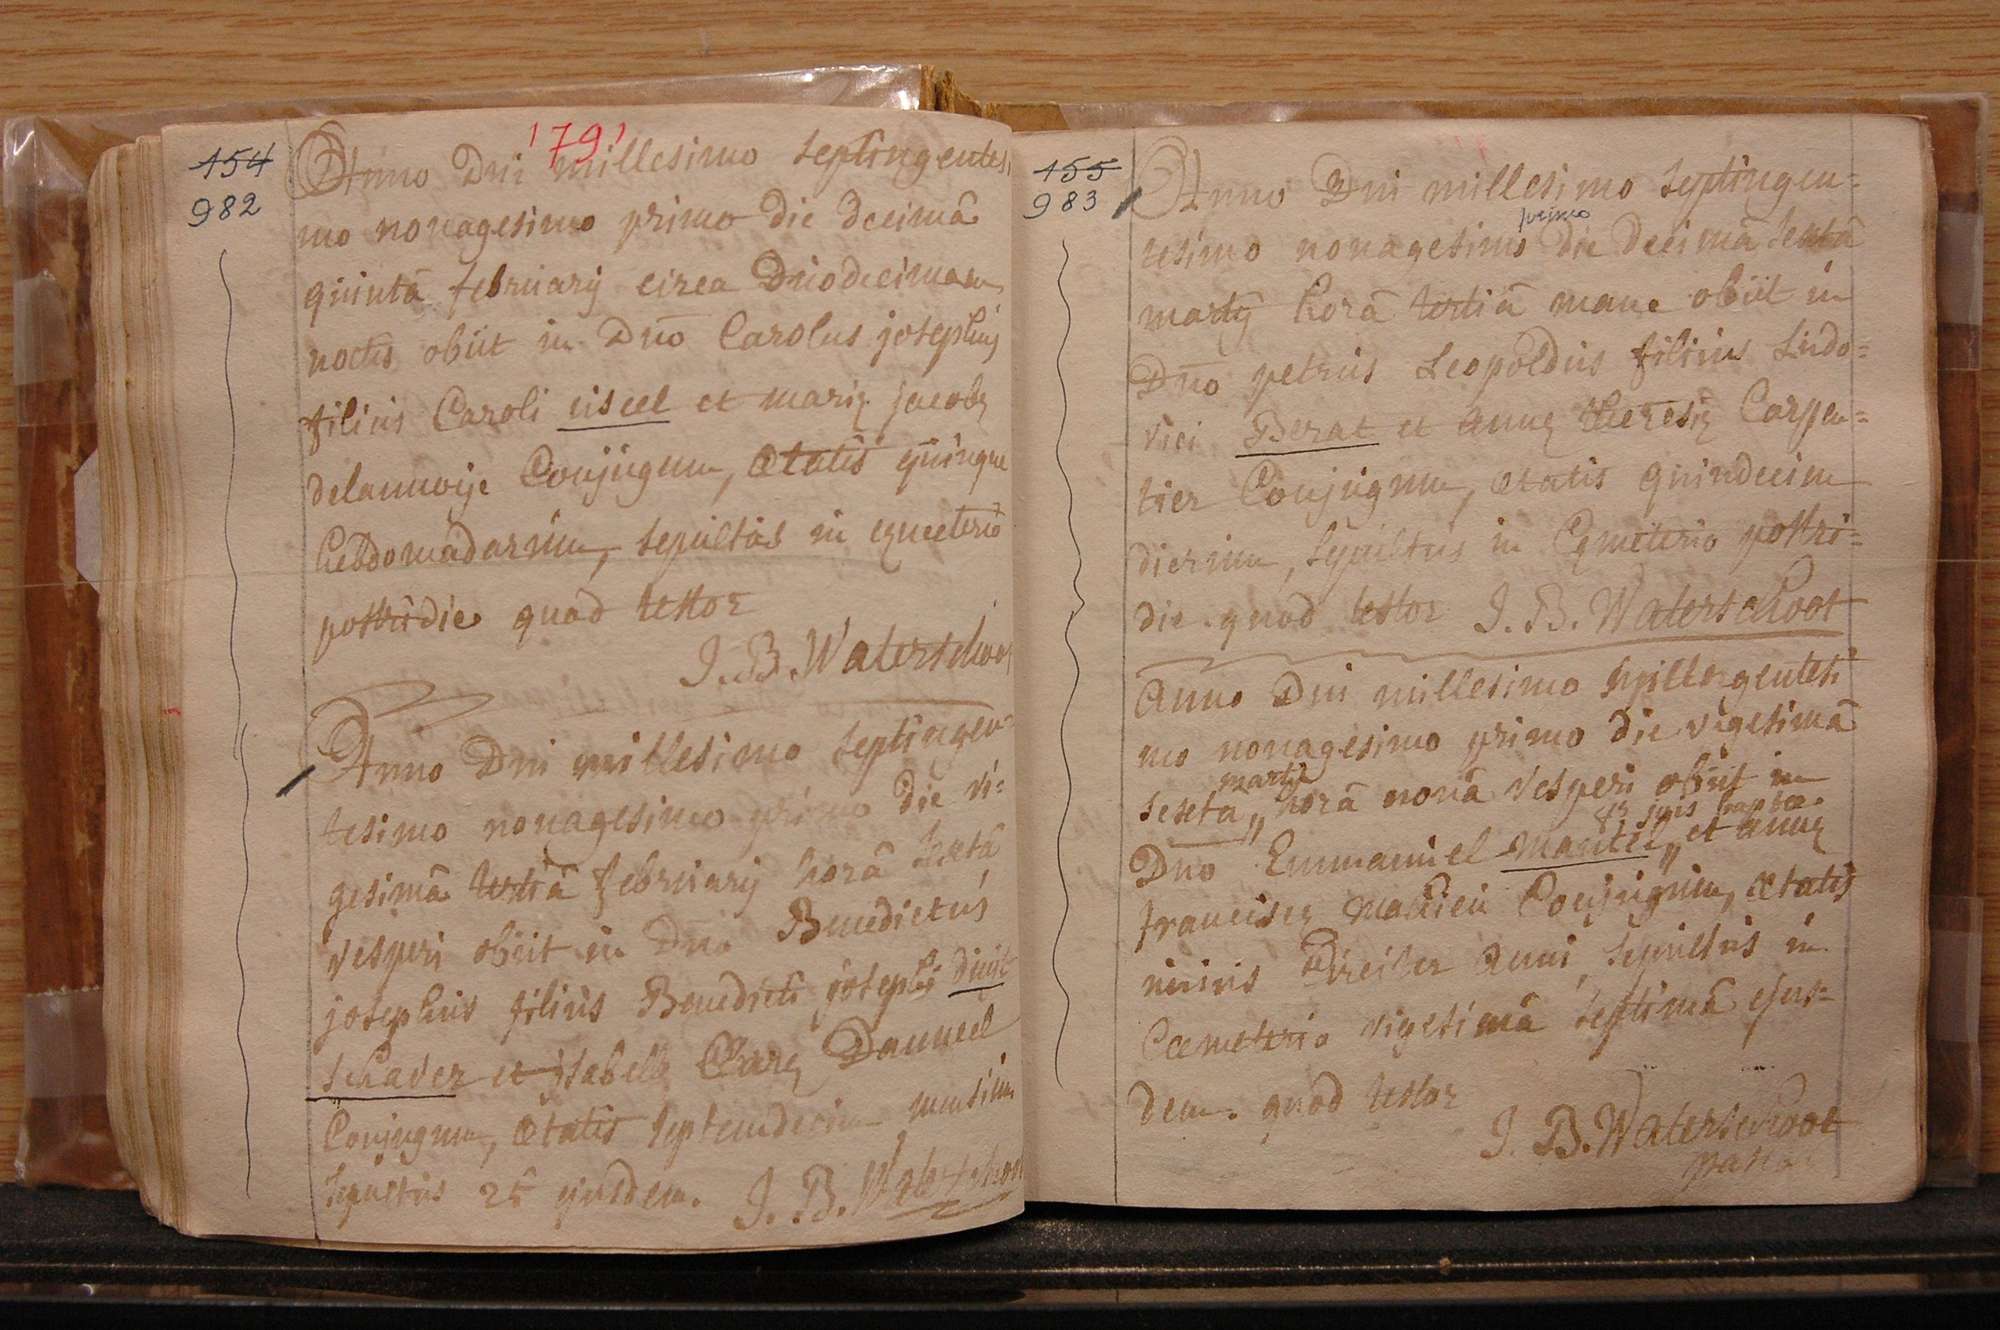 1791
154
982
Anno Dni millesimo septingentesi
mo nonagesimo primo die decimâ
quintâ februarij circa duodecimam
noctis obiit in Dno Carolus josephus
filius Caroli uiscel et mariæ jacobæ
delannoije Conjugum, ætatis quinque
hebdomadarum, sepultus in cymeterio
postridie quod testor
J. B. Waterschoot
Anno Dni millesimo septingen-
tesimo nonagesimo primo die vi-
gesimâ tertiâ februarij horâ sextâ
vesperi obiit in Dno Benedictus
josephus filius Benedicti josephi duit
schaver et isabellæ Claræ Danneel
Conjugum, ætatis septemdecim mensium
sepultus 25 ejusdem. J. B. Waterschoot
155
983
Anno Dni millesimo septingen=
tesimo nonagesimo primo die decimâ sextâ
martij horâ tertiâ mane obiit in
Dno petrus Leopoldus filius Ludo=
vici Berat et annæ theresiæ Carpen=
tier Conjugum, ætatis quindecim
dierum, sepultus in Cymeterio postri=
die quod testor J. B. Waterschoot
Anno Dni millesimo septingentesi
mo nonagesimo primo die vigesimâ
sexta martij horâ nonâ vesperi obiit in
Dno Emmanuel mantel et annæ
franciscæ mahieu Conjugum, ætatis
unius Circiter anni, sepultus in
Cæmeterio vigesimâ septimâ ejus=
dem. quod testor
J. B. Waterschoot
pastor